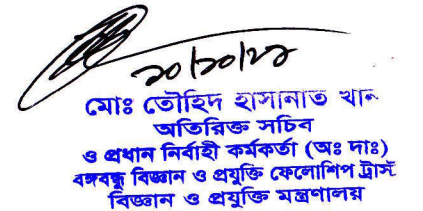 ২০/১০/২১
মোঃ তৌহিদ হাসানাত খান
অতিরিক্ত সচিব
ও প্রধান নির্বাহী কর্মকর্তা (অঃ দাঃ)
বঙ্গবন্ধু বিজ্ঞান ও প্রযুক্তি ফেলোশিপ ট্রাস্ট
বিজ্ঞান ও প্রযুক্তি মন্ত্রণালয়